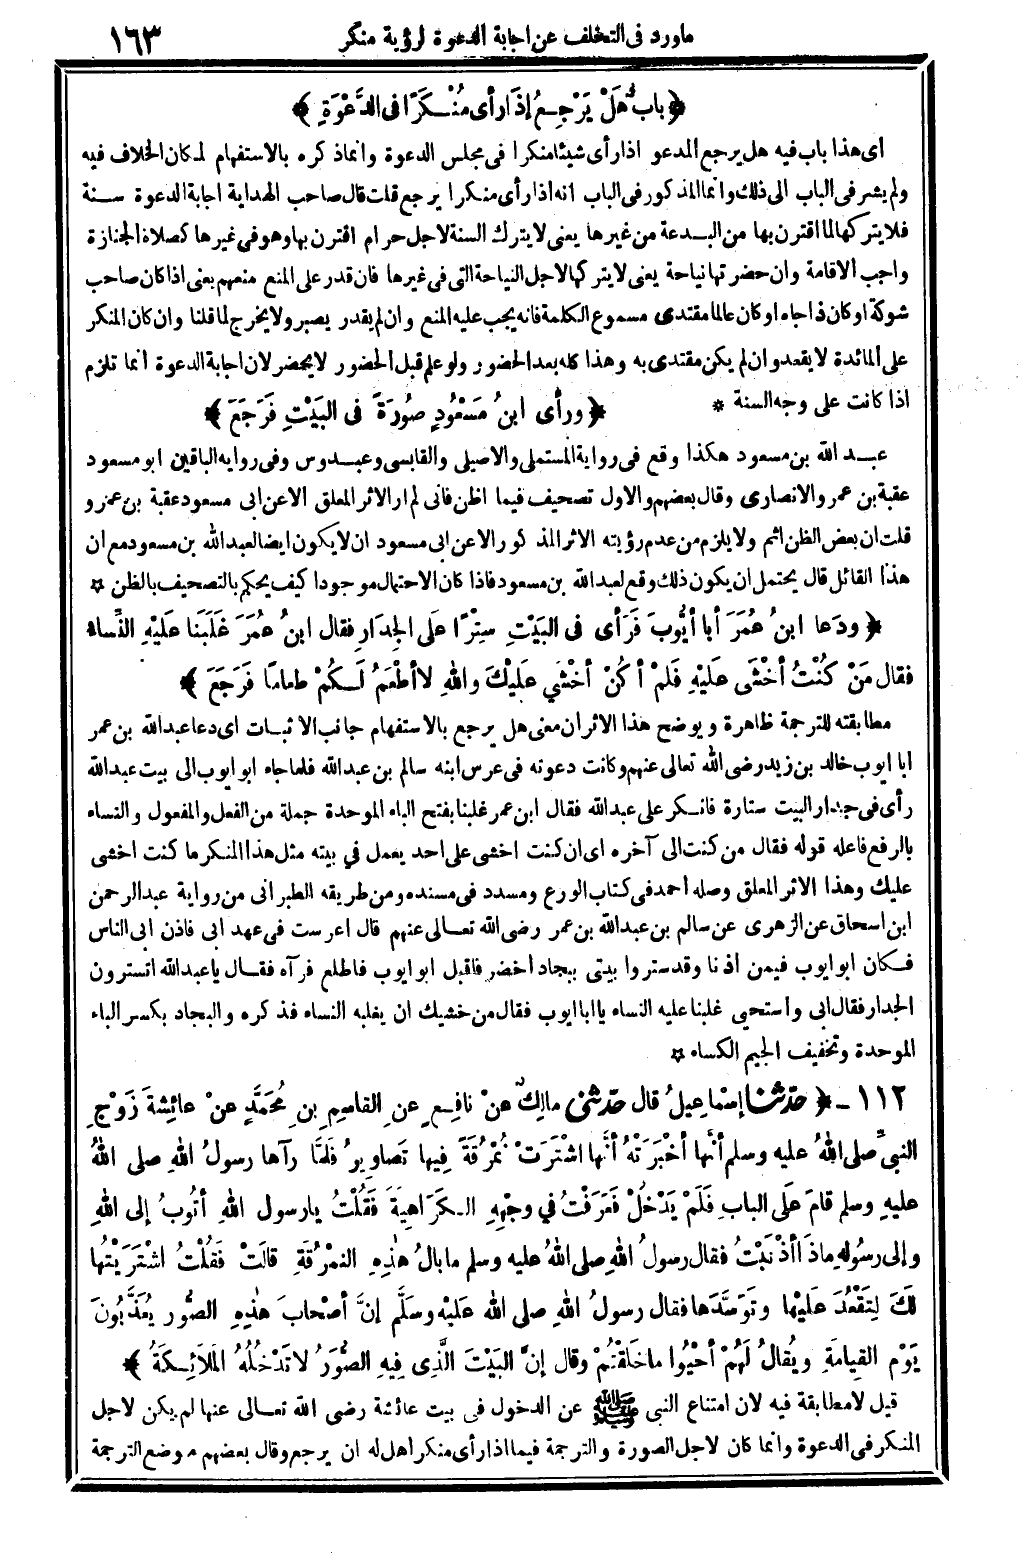 ماورد فى التخلف عن اجابة الدعوة لرؤية منكر ١٦٣
﴿ بابٌ هَلْ يَرْجِعُ إذَا رأى مُنْكَرًا فى الدَّعْوَةِ ﴾
اى هذا باب فيه هل يرجع المدعو اذا رأى شيئا منكرا فى مجلس الدعوة وانما ذكره بالاستفهام لمكان الخلاف فيه
ولم يشر فى الباب الى ذلك وانما المذكور فى الباب انه اذا رأى منكرا يرجع قلت قال صاحب الهداية اجابة الدعوة سنة
فلا يتركها لما اقترن بها من البدعة من غيرها يعنى لا يترك السنة لاجل حرام اقترن بها وهو فى غيرها كصلاة الجنازة
واجب الاقامة وان حضرتها نياحة يعنى لا يتركها لاجل النياحة التى فى غيرها فان قدر على المنع منعهم يعنى اذا كان صاحب
شوكة او كان ذا جاه او كان عالما مقتدى مسموع الكلمة فانه يجب عليه المنع وان لم يقدر يصبر ولا يخرج لما قلنا وان كان المنكر
على المائدة لا يقعد وان لم يكن مقتدى به وهذا كله بعد الحضور ولو علم قبل الحضور لا يحضر لان اجابة الدعوة انما تلزم
اذا كانت على وجه السنة * ﴿ ورأى ابنُ مَسْعُودٍ صُورَةً فى البَيْتِ فَرَجَعَ ﴾
عبد الله بن مسعود هكذا وقع فى رواية المستملى والاصيلى والقابسى وعبدوس وفى رواية الباقين ابو مسعود
عقبة بن عمرو الانصارى وقال بعضهم والاول تصحيف فيما اظن فانى لم ار الاثر المعلق الا عن ابى مسعود عقبة بن عمرو
قلت ان بعض الظن اثم ولا يلزم من عدم رؤيته الاثر المذكور الا عن ابى مسعود ان لا يكون ايضا لعبد الله بن مسعود مع ان
هذا القائل قال يحتمل ان يكون ذلك وقع لعبد الله بن مسعود فاذا كان الاحتمال موجودا كيف يحكم بالتصحيف بالظن *
﴿ ودَعا ابنُ عُمَرَ أبا أيُّوبَ فَرَأى فى البَيْتِ سِتْرًا عَلَى الجِدَارِ فقال ابنُ عُمَرَ غَلَبَنَا عَلَيْهِ النِّساء
فقال مَنْ كُنْتُ أخْشَى عَلَيْهِ فَلَمْ أكُنْ أخْشَي عَلَيْكَ واللهِ لا أطْعَمُ لَكُمْ طعامًا فَرَجَعَ ﴾
مطابقته للترجمة ظاهرة ويوضح هذا الاثر ان معنى هل يرجع بالاستفهام جانب الاثبات اى دعا عبد الله بن عمر
ابا ايوب خالد بن زيد رضى الله تعالى عنهم وكانت دعوته فى عرس ابنه سالم بن عبد الله فلما جاء ابو ايوب الى بيت عبد الله
رأى فى جدار البيت ستارة فانكر على عبد الله فقال ابن عمر غلبنا بفتح الباء الموحدة جملة من الفعل والمفعول والنساء
بالرفع فاعله قوله فقال من كنت الى آخره اى ان كنت اخشى على احد يعمل في بيته مثل هذا المنكر ما كنت اخشى
عليك وهذا الاثر المعلق وصله أحمد فى كتاب الورع ومسدد فى مسنده ومن طريقه الطبرانى من رواية عبد الرحمن
ابن اسحاق عن الزهرى عن سالم بن عبد الله بن عمر رضى الله تعالى عنهم قال اعرست فى عهد ابى فاذن ابى الناس
فكان ابو ايوب فيمن اذنا وقد ستروا بيتى ببجاد أخضر فاقبل ابو ايوب فاطلع فرآه فقال يا عبد الله اتسترون
الجدار فقال ابى واستحيى غلبنا عليه النساء يا ابا ايوب فقال من خشيك ان يغلبه النساء فذكره والبجاد بكسر الباء
الموحدة وتخفيف الجيم الكساء *
١١٢ - ﴿ حدّثنا إسْماعِيلُ قال حدّثنى مالِكٌ عنْ نافِعٍ عنِ القاسِمِ بنِ مُحَمَّدٍ عنْ عائِشةَ زَوْجِ
النبىِّ صلى اللهُ عليه وسلم أنَّها أخْبَرَتْهُ أنَّها اشْتَرَتْ نُمْرُقَةً فِيها تَصاوِيرُ فَلَمَّا رآها رسولُ اللهِ صلى اللهُ
عليهِ وسلم قامَ عَلَى البابِ فَلَمْ يَدْخُلْ فَعَرَفْتُ في وجْهِهِ الكَرَاهِيَةَ فَقُلْتُ يا رسول اللهِ أتُوبُ إلى اللهِ
وإلى رسُولِهِ ماذَا أذْنَبْتُ فقال رسولُ اللهِ صلى اللهُ عليه وسلم ما بالُ هٰذِهِ النمْرُقَةِ قالَتْ فَقُلْتُ اشْتَرَيْتُها
لكَ لِتَقْعُدَ عَلَيْها وتَوَسَّدَها فقال رسولُ اللهِ صلى الله عَليْهِ وسَلَّم إنَّ أصْحابَ هٰذِهِ الصُّورِ يُعَذَّبُونَ
يَوْمَ القِيامَةِ ويُقالُ لَهُمْ أحْيُوا ما خَلَقْتُمْ وقال إنَّ البَيْتَ الَّذِى فِيهِ الصُّوَرُ لا تَدْخُلُهُ المَلاَئِكَةُ ﴾
قيل لا مطابقة فيه لان امتناع النبى ﷺ عن الدخول فى بيت عائشة رضى الله تعالى عنها لم يكن لاجل
المنكر فى الدعوة وانما كان لاجل الصورة والترجمة فيما اذا رأى منكرا هل له ان يرجع وقال بعضهم موضع الترجمة